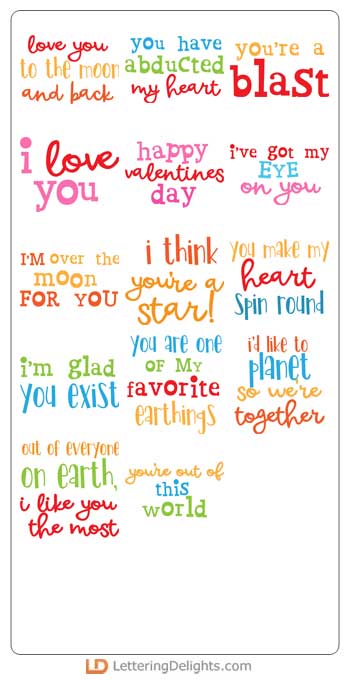 love you
to the moon
and back
you have
abducted
my heart
you're a
blast
i love
you
happy
valentines
day
i've got my
EYE
on you
I'M over the
moon
FOR YOU
i think
you're a
star!
you make my
heart
spin round
i'm glad
you exist
you are one
of My
favorite
earthings
i'd like to
planet
so we're
together
out of everyone
on earth,
i like you
the most
you're out of
this
world
LD LetteringDelights.com